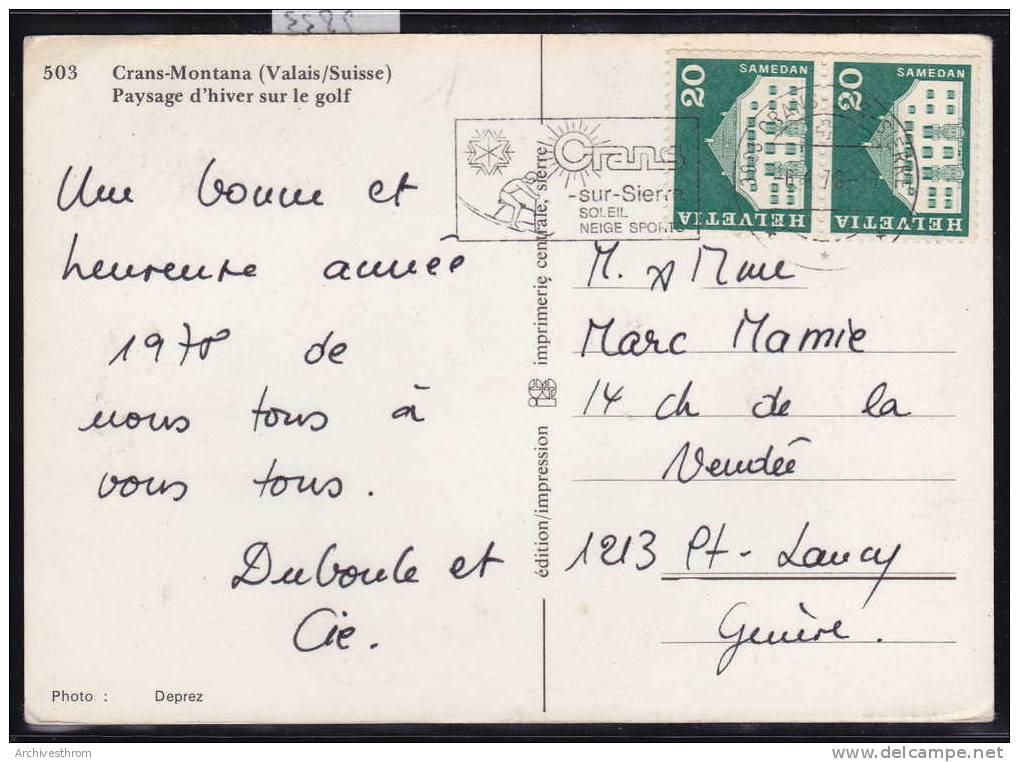 503 Crans-Montana (Valais/Suisse)
Paysage d'hiver sur le golf
Une bonne et
heureuse année
1978 de
nous tous à
vous tous.
Duboule et
Cie.
Photo : Deprez
édition/impression imprimerie centrale, sierre
Crans
-sur-Sierre
SOLEIL
NEIGE SPORTS
20 SAMEDAN
HELVETIA
20 SAMEDAN
HELVETIA
M. & Mme
Marc Mamie
14 ch de la
Vendée
1213 Pt-Lancy
Genève.
Archivesthrom
www.delcampe.net